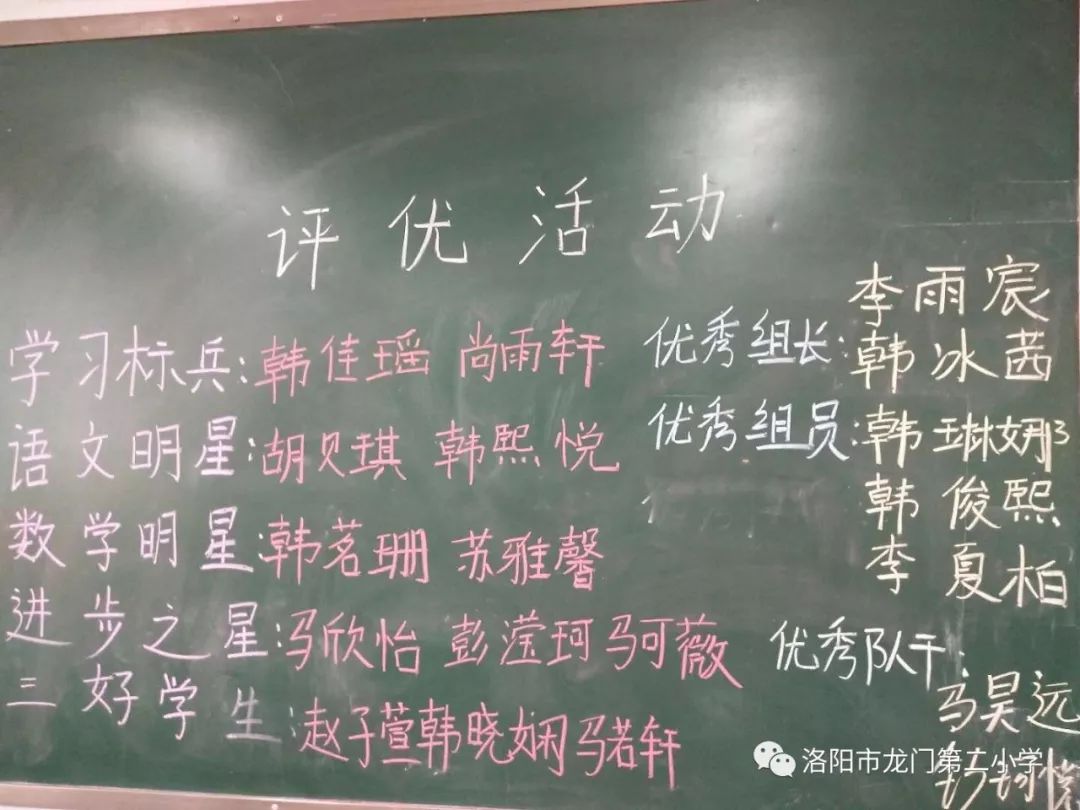 评优活动
学习标兵:韩佳瑶 尚雨轩
语文明星:胡贝琪 韩熙悦
数学明星:韩茗珊 苏雅馨
进步之星:冯欣怡 彭滢珂 马可薇
三好学生:赵子萱 韩晓娴 马若轩
李雨宸
优秀组长:韩冰茜
优秀组员:韩琳娜
韩俊熙
李夏柏
优秀队干:
马昊远
洛阳市龙门第二小学